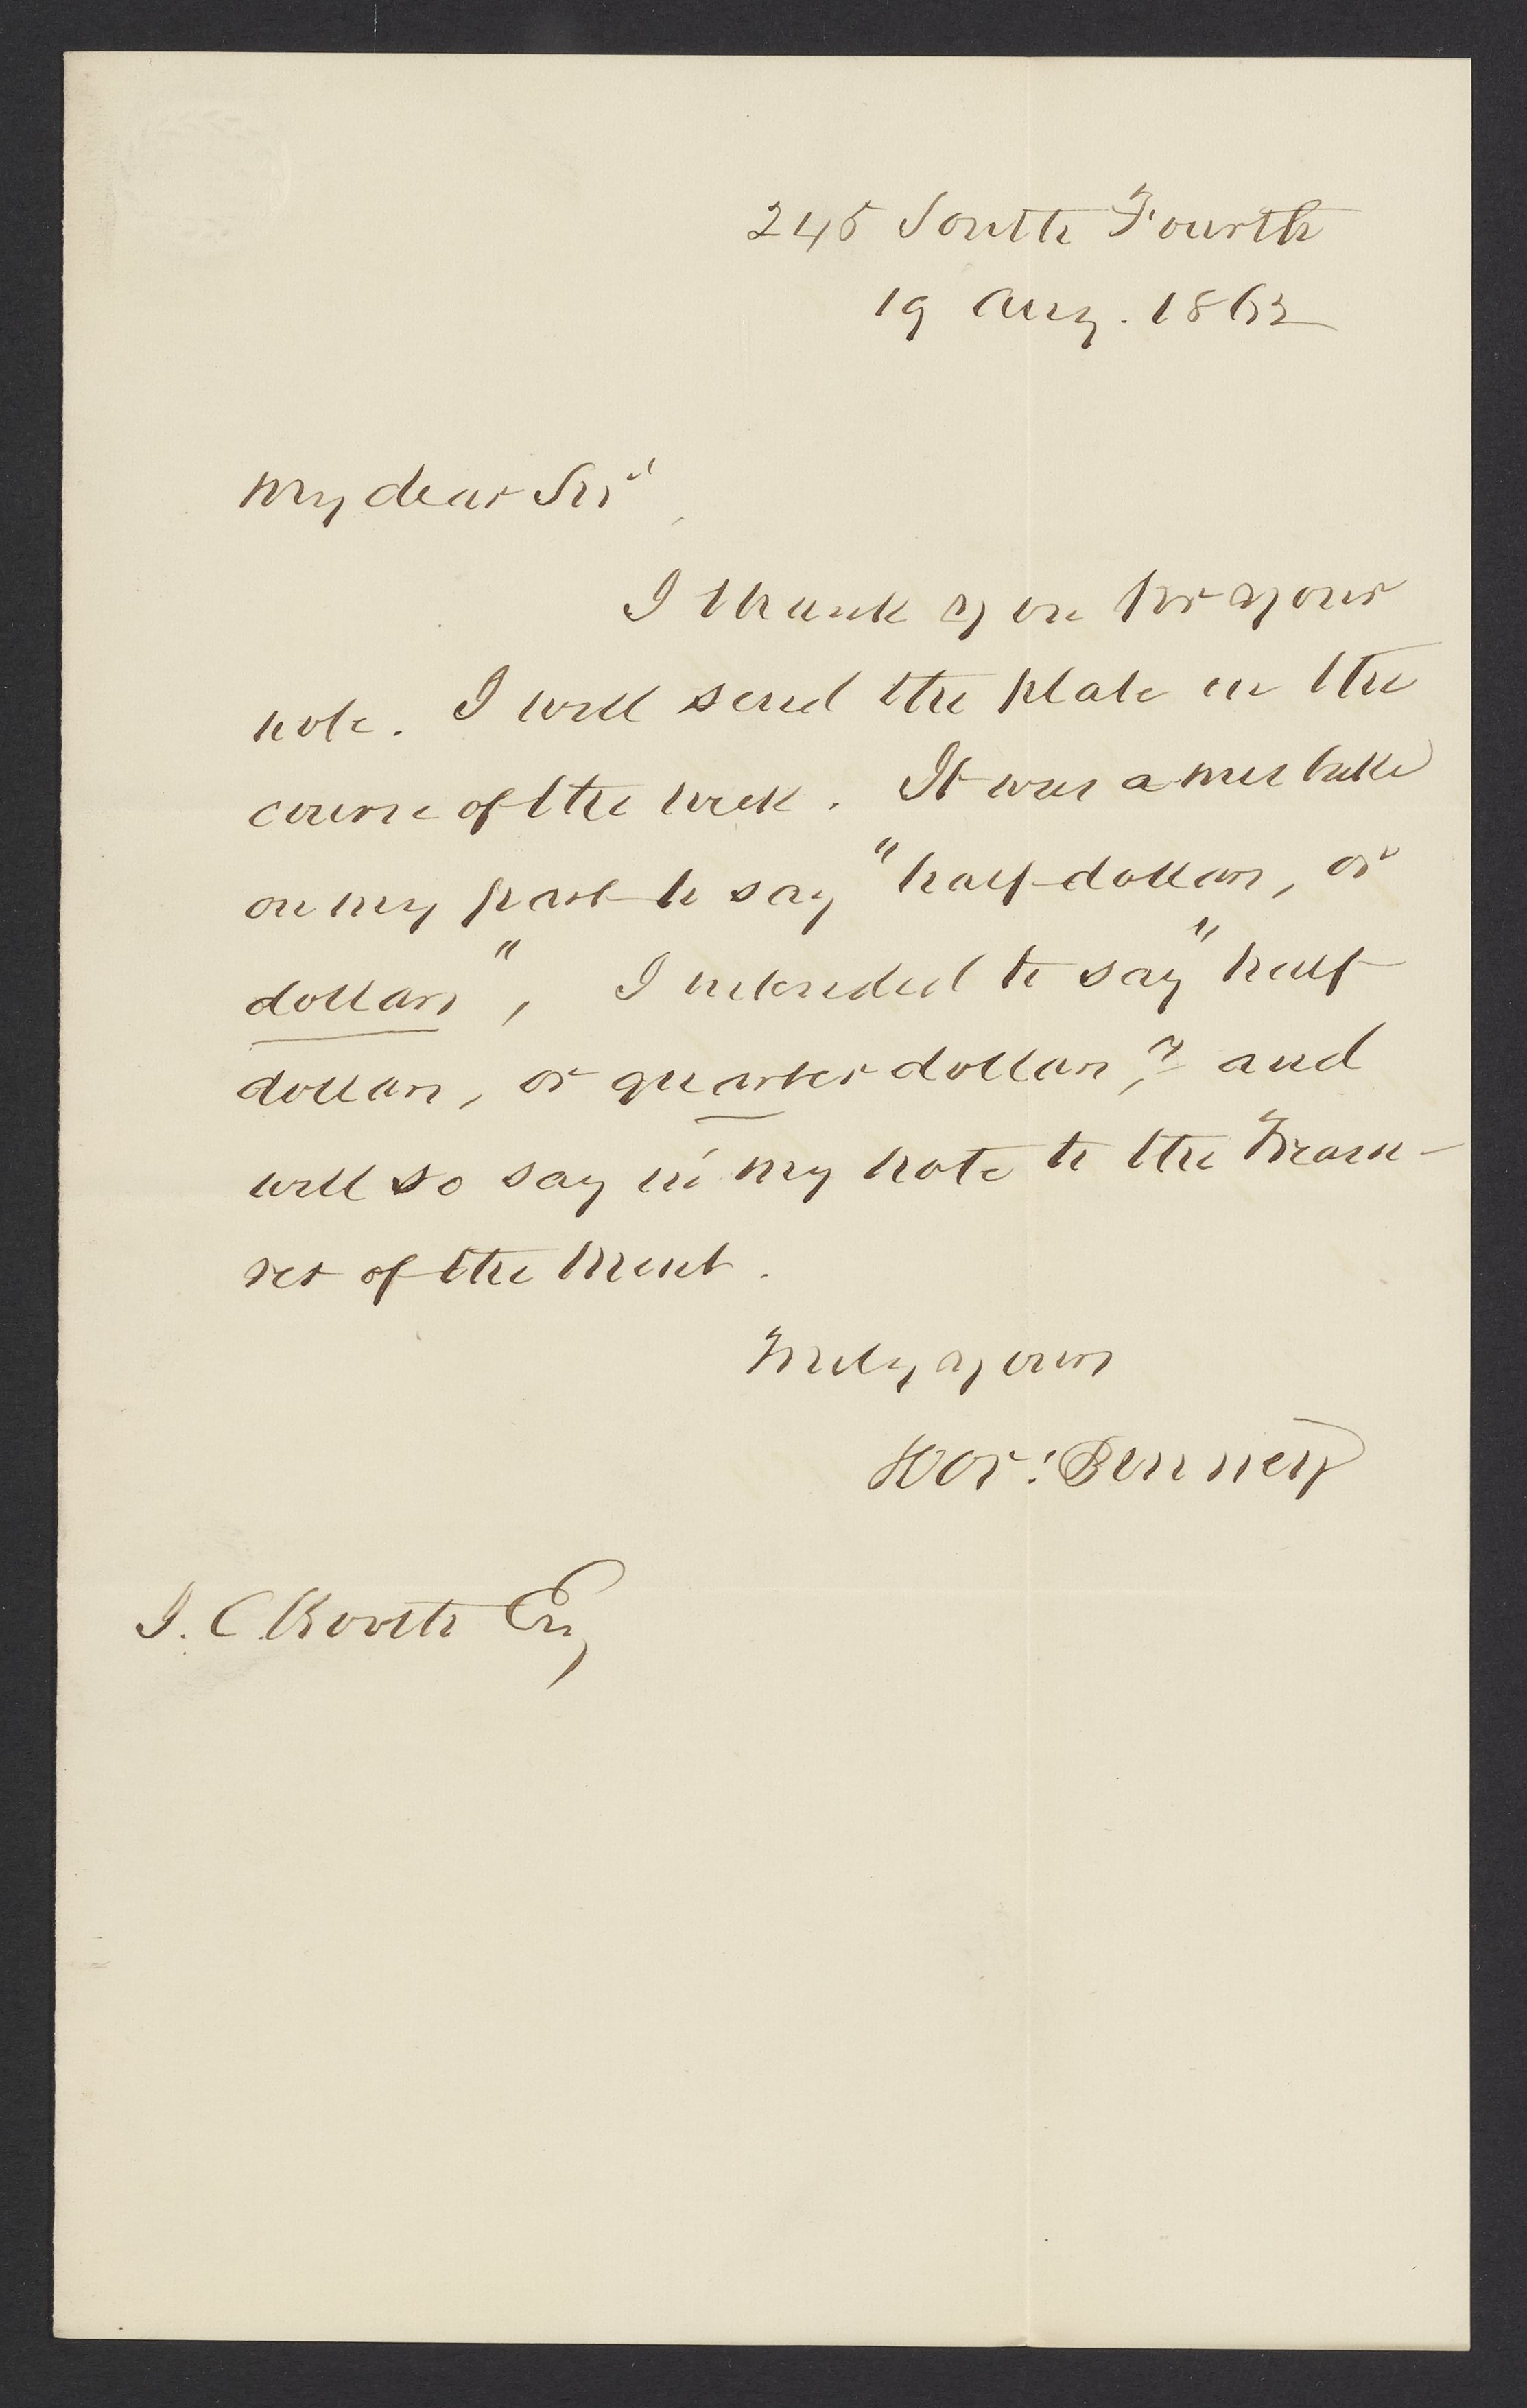 245 South Fourth
19 Aug. 1862
My dear Sir,
I thank you for your
note. I will send the plate in the
course of the week. It was a mistake
on my part to say "half-dollars, or
dollars", I intended to say "half
dollars, or quarter dollars," and
will so say in my note to the Treasu-
rer of the Mint.
Truly yours
Hor: Binney
J. C. Booth Esq